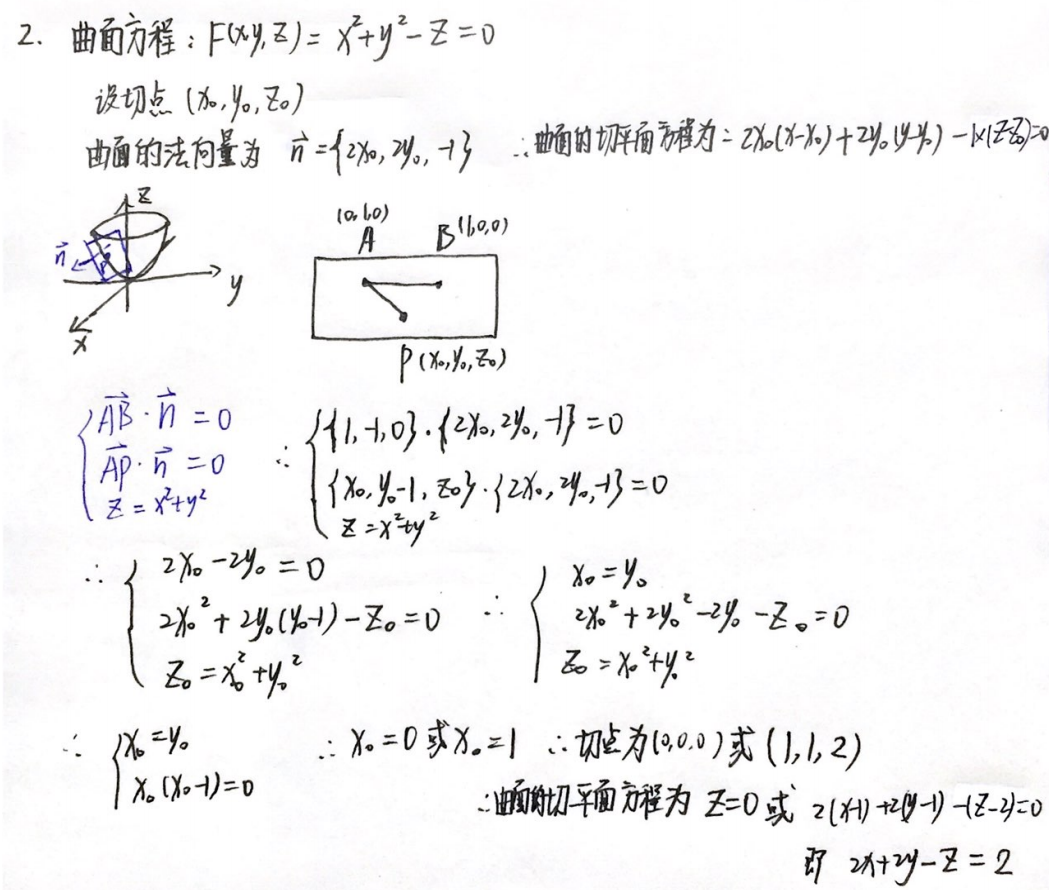 2. 曲面方程：F(x,y,z) = x²+y²-z=0
设切点 (x₀,y₀,z₀)
曲面的法向量为 n⃗ = {2x₀, 2y₀, -1} ∴曲面的切平面方程为：2x₀(x-x₀)+2y₀(y-y₀)-1×(z-z₀)=0
z
n⃗
y
x
(0,1,0)
A
B(1,0,0)
P(x₀,y₀,z₀)
{ AB⃗·n⃗ = 0
AP⃗·n⃗ = 0
z = x²+y²
∴ { {1,-1,0}·{2x₀,2y₀,-1} = 0
{x₀,y₀-1,z₀}·{2x₀,2y₀,-1} = 0
z = x²+y²
∴ { 2x₀-2y₀ = 0
2x₀²+2y₀(y₀-1)-z₀ = 0
z₀ = x₀²+y₀²
∴ { x₀ = y₀
2x₀²+2y₀²-2y₀-z₀ = 0
z₀ = x₀²+y₀²
∴ { x₀ = y₀
x₀(x₀-1) = 0
∴ x₀=0 或 x₀=1 ∴切点为(0,0,0)或(1,1,2)
∴曲面的切平面方程为 z=0 或 2(x-1)+2(y-1)-(z-2)=0
即 2x+2y-z=2